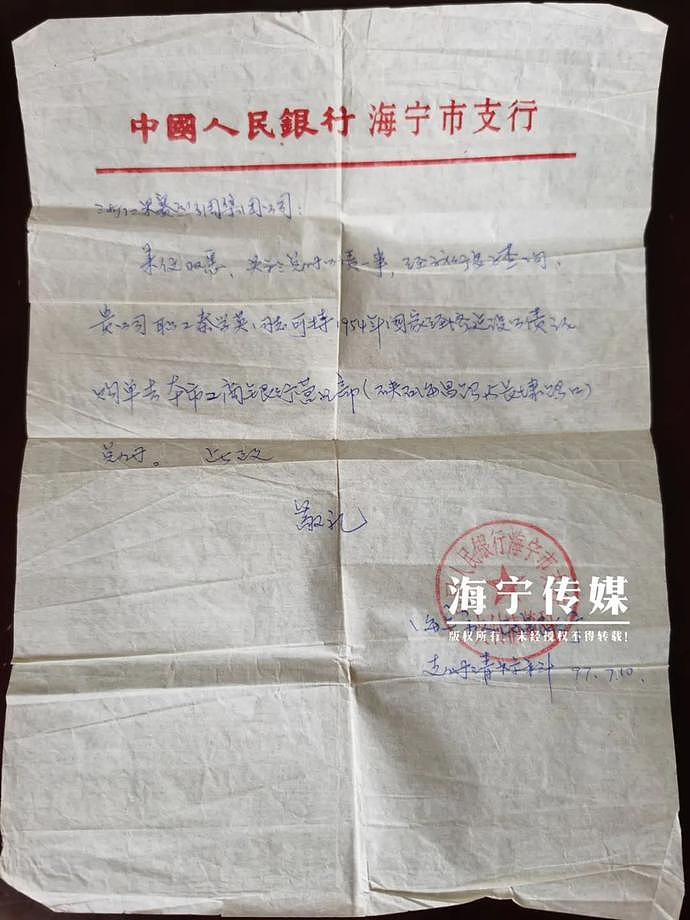 中國人民銀行海宁市支行
集团公司:
来信收悉,关于兑付公债一事,经我行查询,
贵公司职工秦 英同志可持1954年国家经济建设公债认
购单去本市工商银行营业部(硖石 昌路与长埭路口)
兑付。 此致
敬礼
人民银行海宁市
海宁传媒
版权所有,未经授权不得转载!
97.7.10.